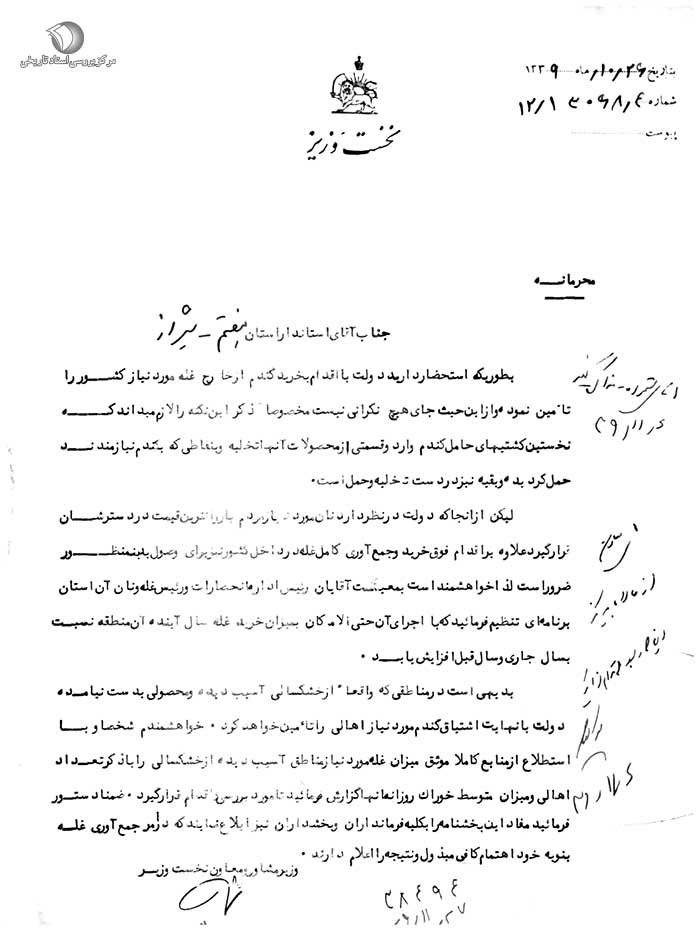 مرکز بررسی اسناد تاریخی
بتاریخ ۱۰/۲۶ ماه ۱۳۳۹
شماره ۱۲/۱ ۳۰۶۸۰۴
پیوست
نخست وزیر
محرمانه
جناب آقای استاندار استان هفتم - شیراز
بطوریکه استحضار دارید دولت با اقدام بخرید گندم از خارج غله مورد نیاز کشور را
تامین نموده و از این حیث جای هیچ نگرانی نیست مخصوصا ذکر این نکته را لازم میداند که
نخستین کشتیهای حامل گندم وارد و قسمتی از محصولات آنها تخلیه و بنقاطی که بگندم نیازمندند
حمل گردیده و بقیه نیز در دست تخلیه و حمل است.
لیکن از آنجا که دولت در نظر دارد نان مورد نیاز مردم با نازلترین قیمت در دسترشان
قرار گیرد علاوه بر اقدام فوق خرید و جمع آوری کامل غله در داخل کشور نیز برای وصول بدینمنظور
ضرور است لذا خواهشمند است بمعیت آقایان رئیس اداره انحصارات و رئیس غله و نان آن استان
برنامه ای تنظیم فرمائید که با اجرای آن حتی الامکان بمیزان خرید غله سال آینده آن منطقه نسبت
بسال جاری و سال قبل افزایش یابد.
بدیهی است در مناطقی که واقعا از خشکسالی آسیب دیده و محصولی بدست نیامده
دولت با نهایت اشتیاق گندم مورد نیاز اهالی را تامین خواهد کرد. خواهشمندم شخصا و با
استطلاع از منابع کاملا موثق میزان غله مورد نیاز مناطق آسیب دیده از خشکسالی را با ذکر تعداد
اهالی و میزان متوسط خوراک روزانه آنها گزارش فرمائید تا مورد بررسی و اقدام قرار گیرد. ضمنا دستور
فرمائید مفاد این بخشنامه را بکلیه فرمانداران و بخشداران نیز ابلاغ نمایند که در امر جمع آوری غله
بنوبه خود اهتمام کافی مبذول و نتیجه را اعلام دارند.
وزیر مشاور و معاون نخست وزیر
۳۸۴۹۴